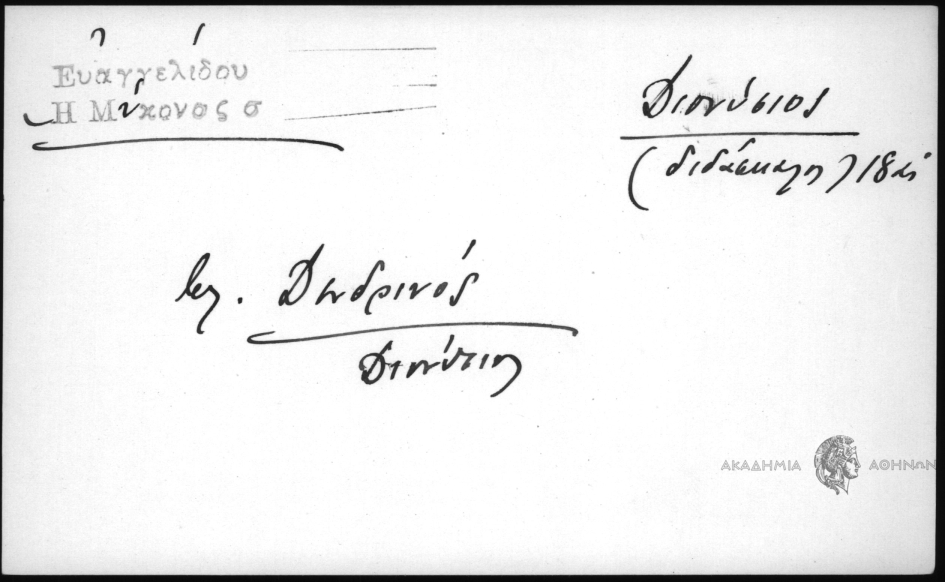 Εὐαγγελίδου
Ἡ Μύκονος σ
Διονύσιος
(διδάσκαλος) 18
βλ. Δενδρινός
Διονύσιος
ΑΚΑΔΗΜΙΑ ΑΘΗΝΩΝ